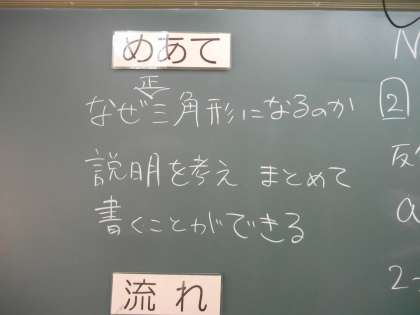 めあて
正
なぜ三角形になるのか
説明を考え まとめて
書くことができる
流れ
N
2
反
a
2-